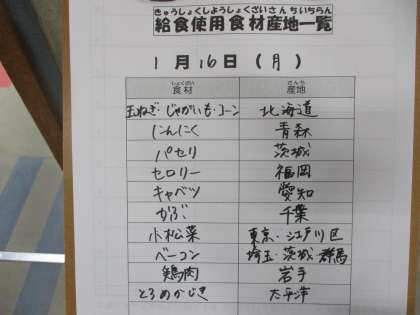 きゅうしょくしようしょくざいさんちいちらん
給食使用食材産地一覧
1月16日(月)
しょくざい さんち
食材 産地
玉ねぎ・じゃがいも・コーン 北海道
にんにく 青森
パセリ 茨城
セロリー 福岡
キャベツ 愛知
かぶ 千葉
小松菜 東京・江戸川区
ベーコン 埼玉・茨城 群馬
鶏肉 岩手
とろめかじき 太平洋